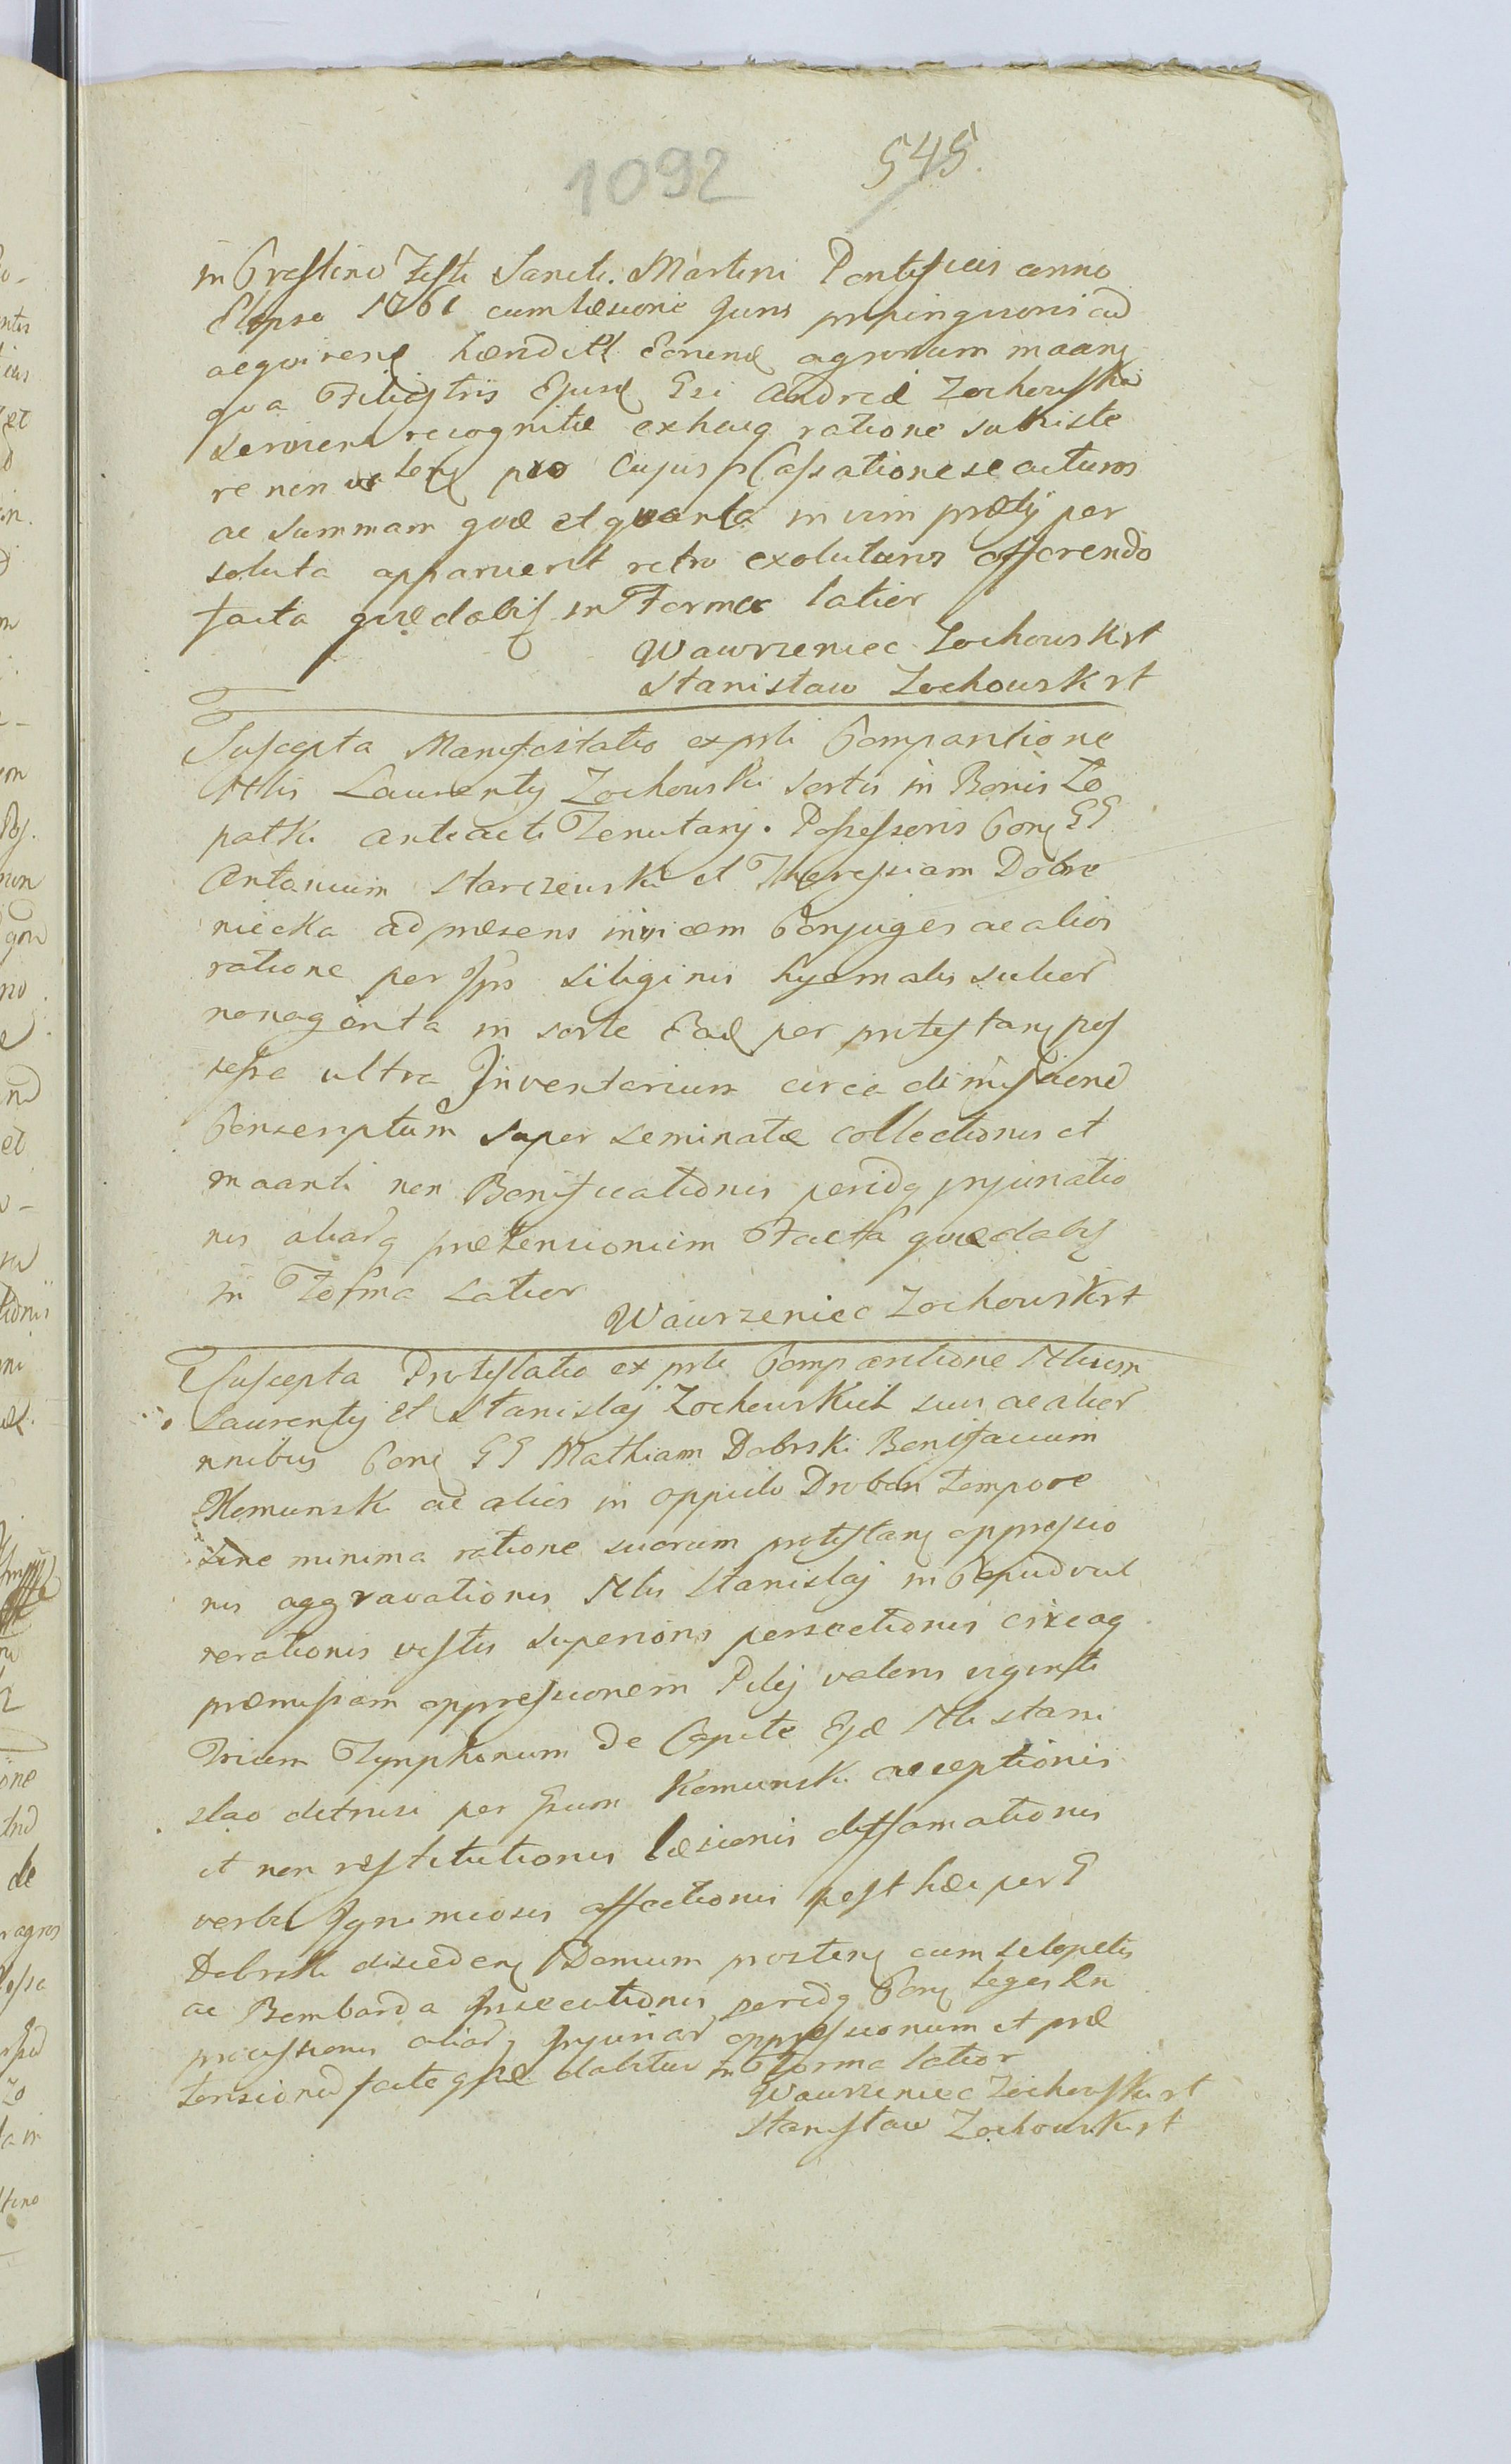 1092 545.
in Crastino Festi Sancti Martini Pontificis anno
Elapso 1761 cum læsione Juris propinquioris ad
acquirend hæredit Eorund agrorum maang
qva Filiastris Ejusd Gsi Andreæ Zochowski
servient recognitæ exhacq ratione subsiste
re non pro Cujus Cassatione se acturos
ac Summam qvæ et qvanta in vim prætij per
soluta apparuerit retro exoluturos offerendo
facta qvæ dabit in Forma latior
Wawrzeniec Zochowski rt
Stanisław Zochowsk rt
Suscepta Manifestatio ex prli Comparitione
Nlis Laurentij Zochowski Sortis in Bonis Lo
patki anteacti Tenutarij Possessoris Con GG
Antonium Starczewski et Theressiam Dobro
niecka ad præsens invicem Conjuges ac alios
ratione per Ips siliginis hyemalis sulcor
nonaginta in sorte Ead per protestan pos
sessa ultra Inventarium circa dimissione
Conscriptum super seminatæ collectionis et
maanti non Bonificationis peridq injuriatio
nis aliarq prætensionum Facta qvæ dabit
in Forma Latior
Wawrzeniec Zochowski rt
Suscepta Protestatio ex prli Comparitione Nlium
Laurentij et Stanislaj Zochowskich suis ac alior
nnibus Con GG Mathiam Dobrski Bonifacium
Komunski ac alios in oppido Drobin tempore
sine minima ratione suorum protestan oppressio
nis aggravationis Nlis Stanislaj in Caput vul
nerationis vestis superioris persectionis circaq
præmissam oppressionem Pilej valens viginti
Trium Tynphonum de Capite Ejd Nli Stani
slao detrusi per Gsum Komunski acceptionis
et non restitutionis læsionis diffamationis
verbis Ignominiosis affectionis post hæc per G
Dobrski disceden Domum prosten cum sclopetis
ac Bombarda Insecutionis peridq Con leges In
processionis aliarq Injuriar oppressionum et præ
tensionum facta qvæ dabitur in Forma latior
Wawrzeniec Zochowski rt
Stanisław Zochowski rt